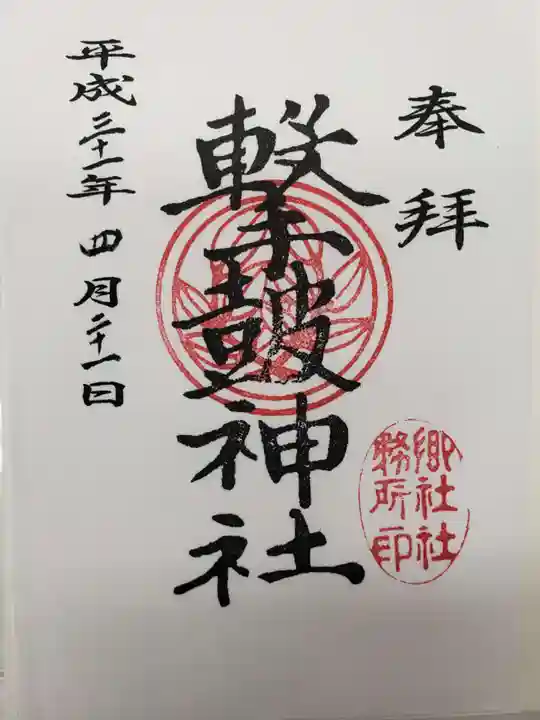 奉拝
撃鼓神社
平成三十一年四月二十一日
郷社社
務所印